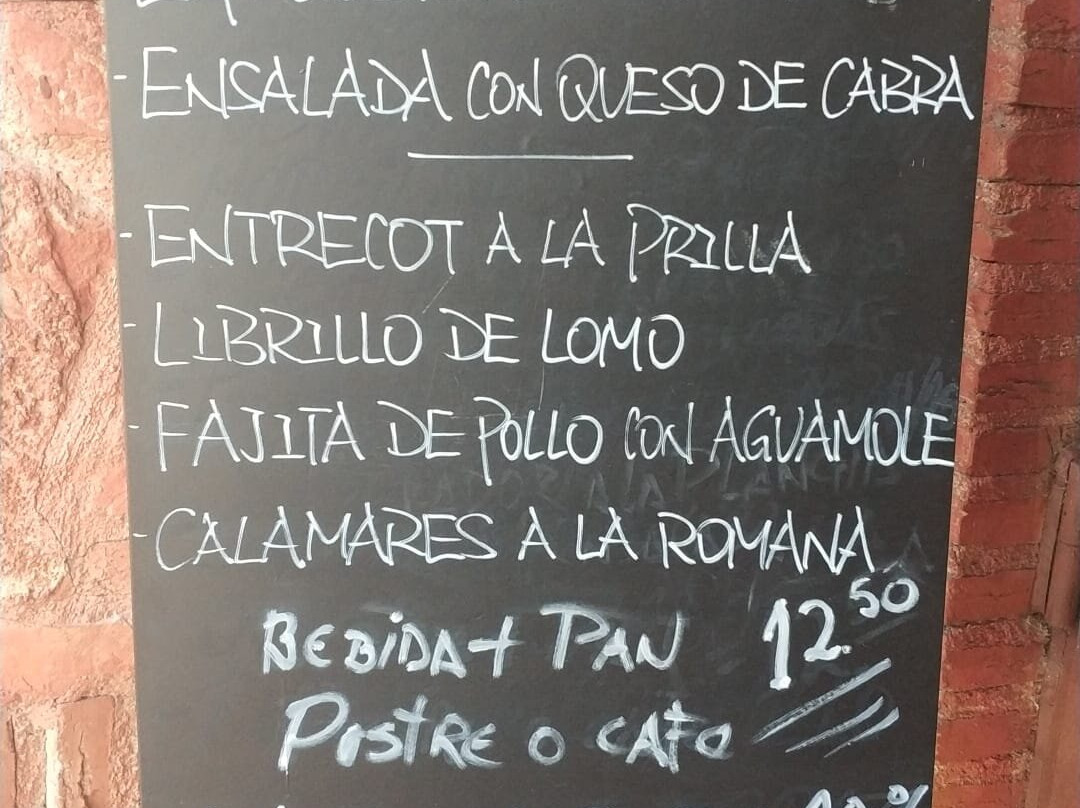 - ENSALADA CON QUESO DE CABRA
- ENTRECOT A LA PRILLA
- LIBRILLO DE LOMO
- FAJITA DE POLLO CON AGUAMOLE
- CALAMARES A LA ROMANA
BEBIDA + PAN 12.50
POSTRE O CAFE